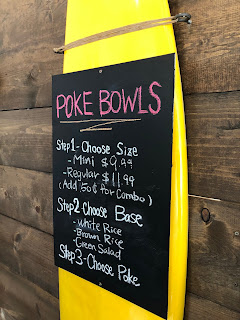 POKE BOWLS
Step 1 - Choose Size
- Mini $9.99
- Regular $11.99
(Add 50¢ for Combo)
Step 2 - Choose Base
- White Rice
- Brown Rice
- Green Salad
Step 3 - Choose Poke